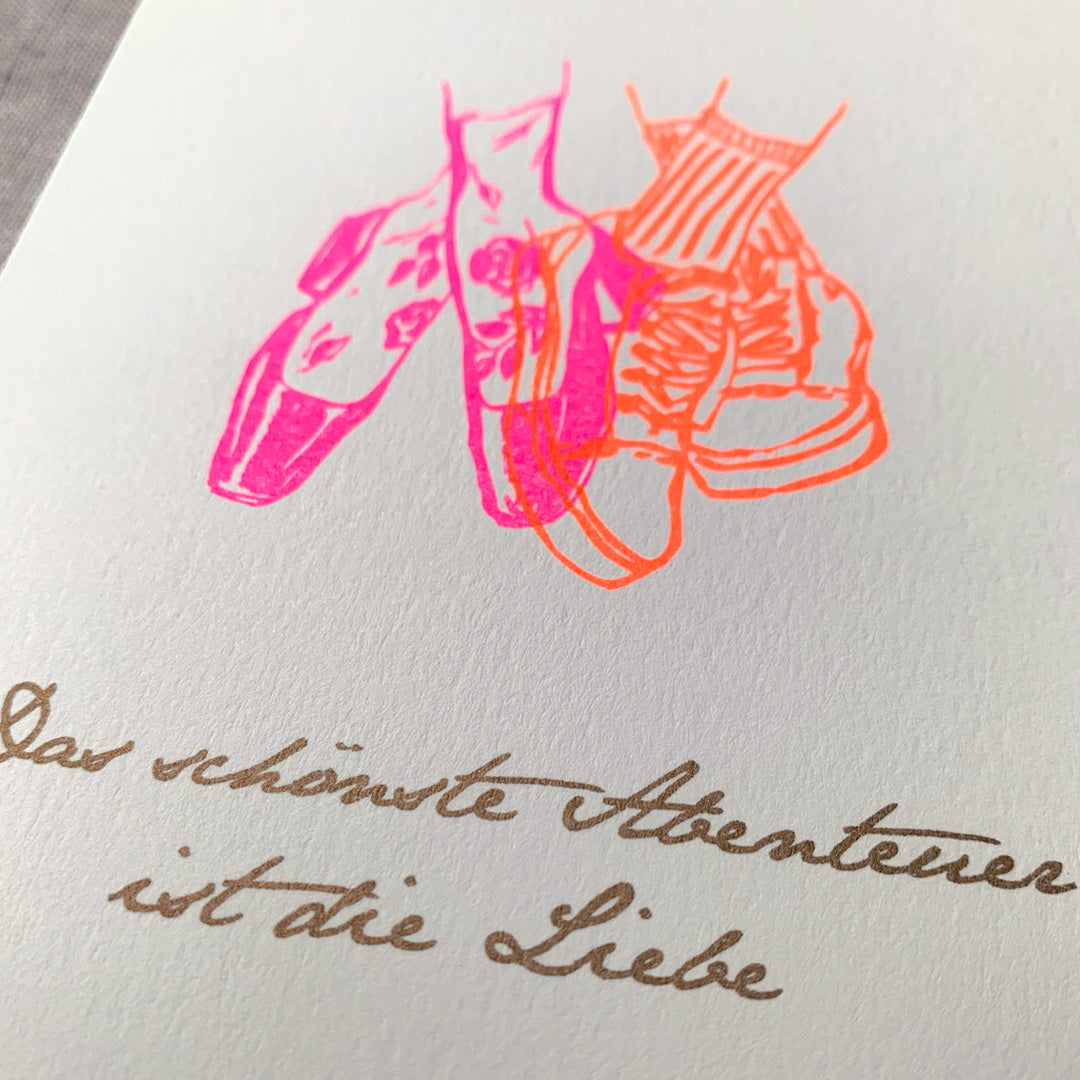 Das schönste Abenteuer
ist die Liebe